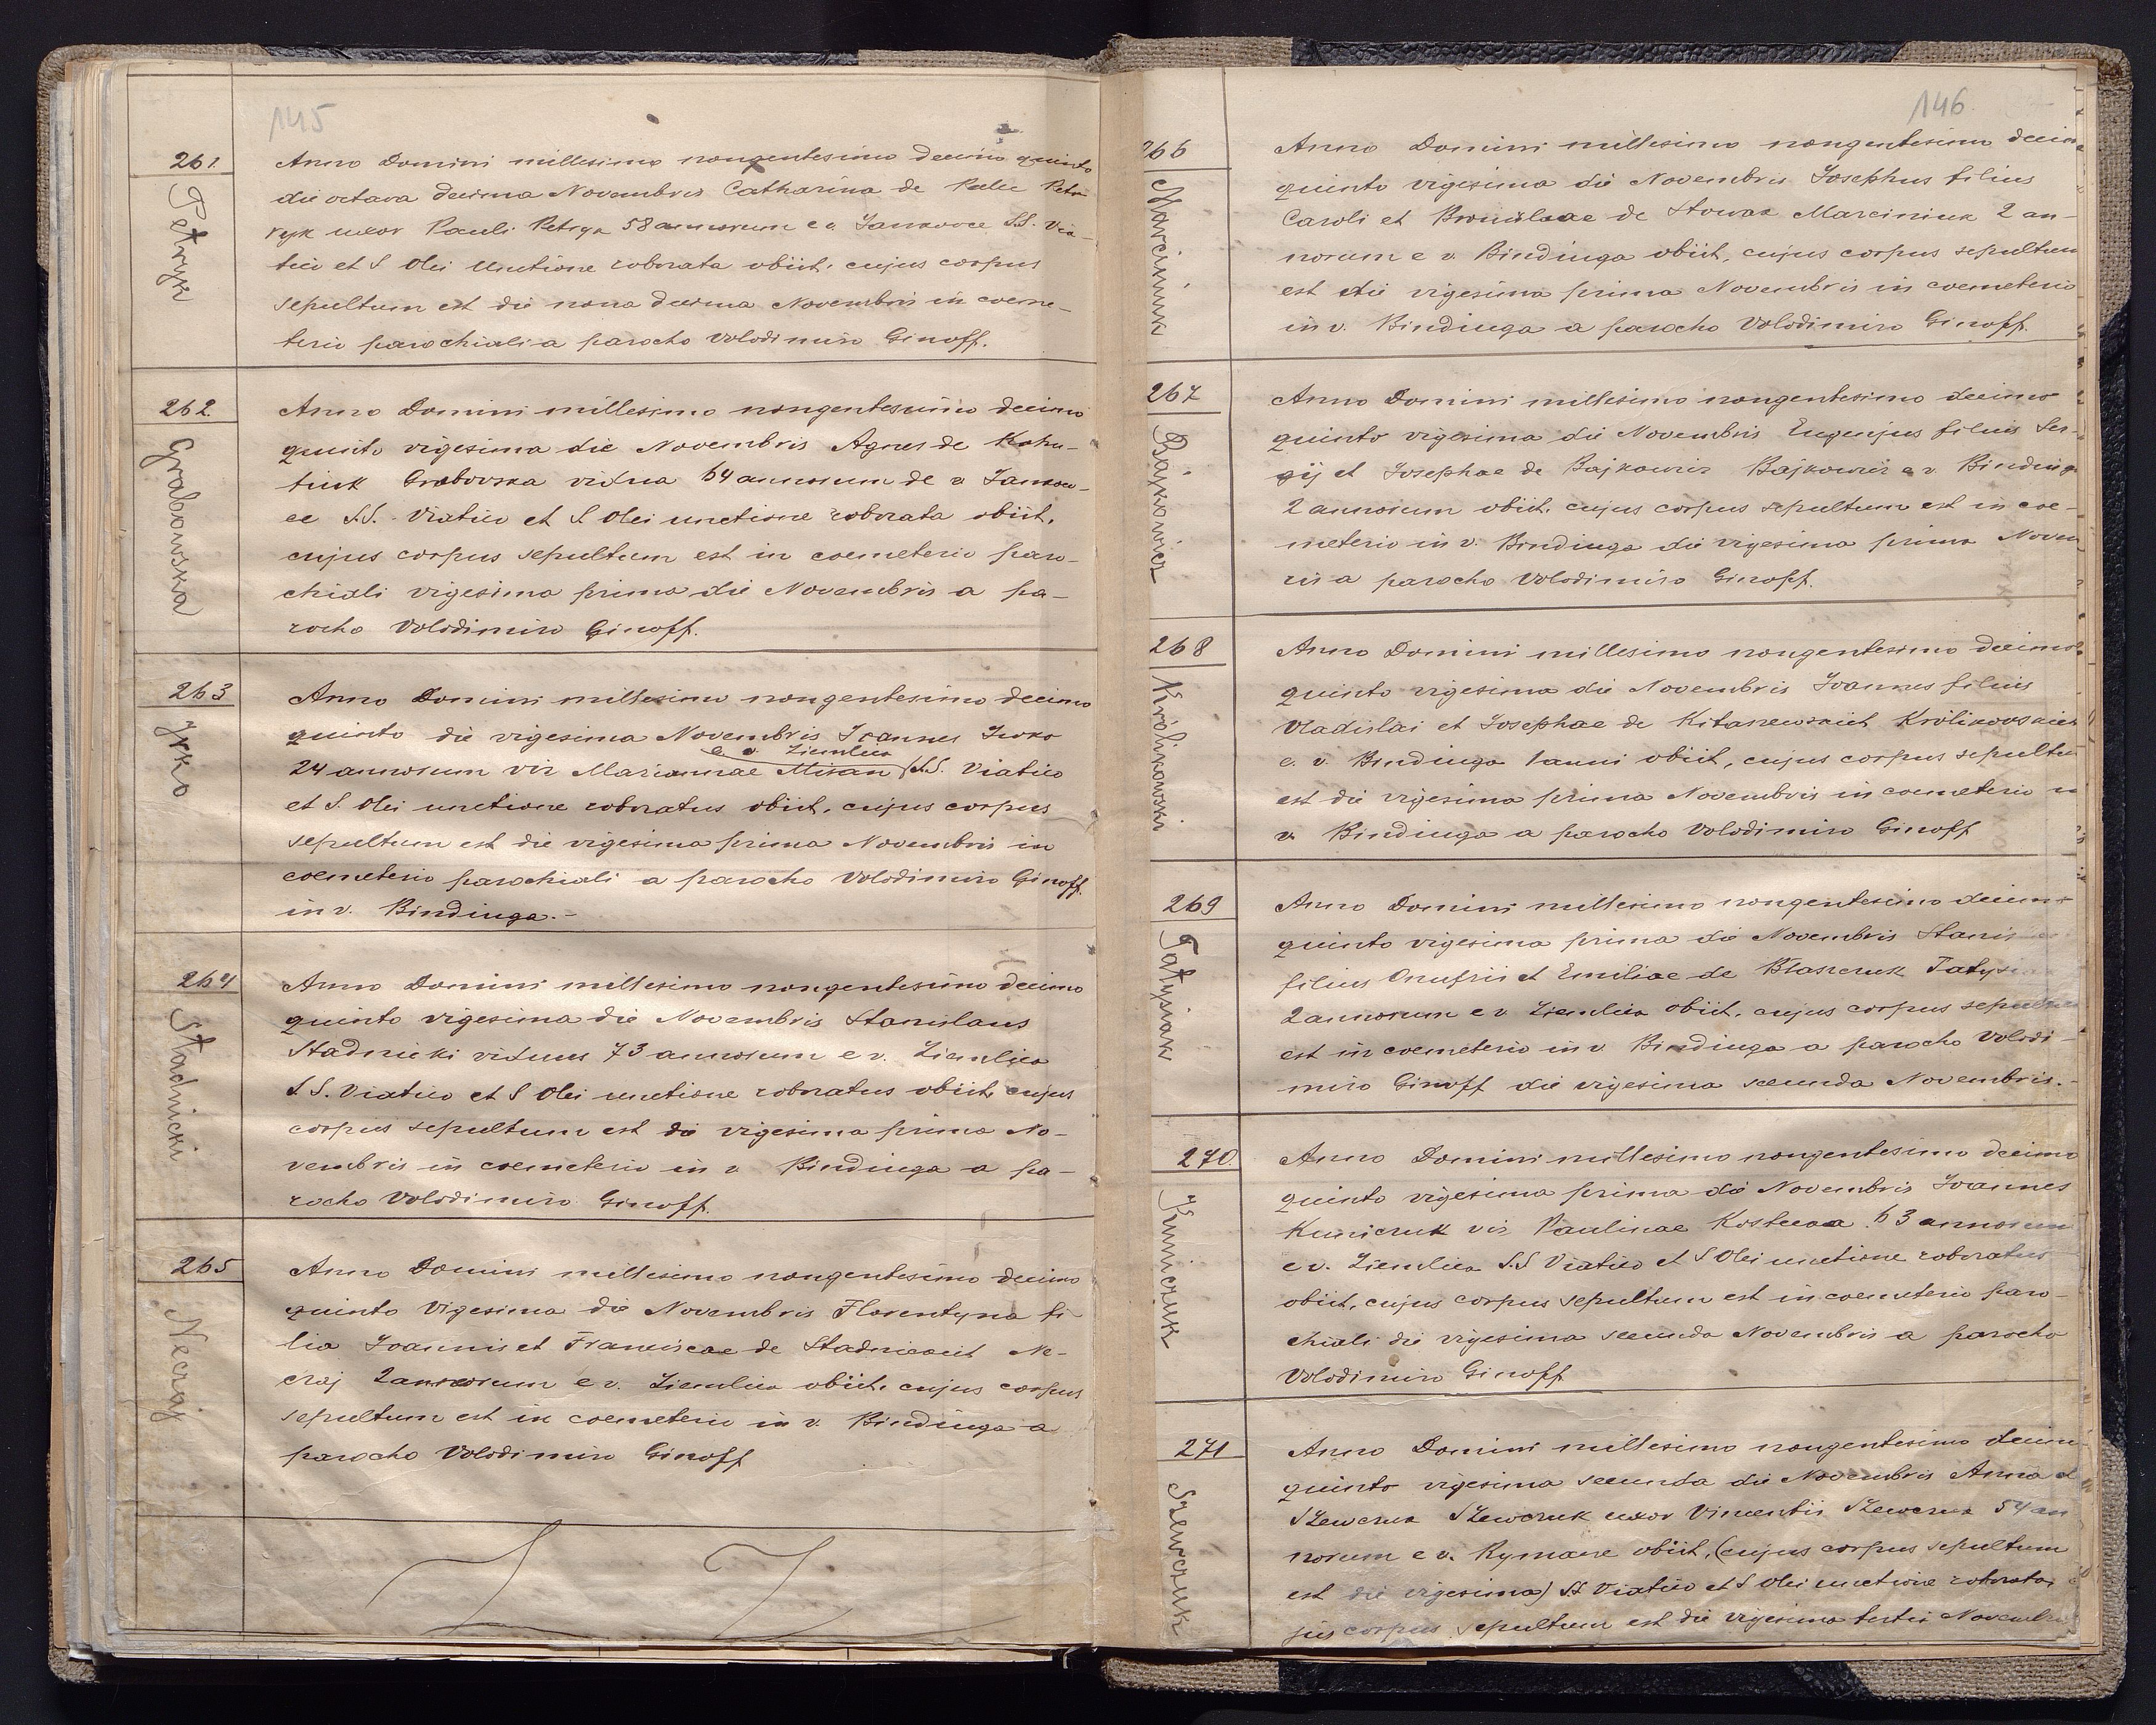 145
261.
Petryk
Anno Domini millesimo nongentesimo decimo quinto
die octava decima Novembris Catharina de Petre-
ryk uxor Pauli Petryk 58 annorum e v. Jankowce S.S. Via-
tico et S Olei unctione roborata obiit, cujus corpus
sepultum est die nona decima Novembris in coeme-
terio parochiali a parocho Volodimiro Ginoff.
262.
Grabowska
Anno Domini millesimo nongentesimo decimo
quinto vigesima die Novembris Agnes de Kohu-
tiuk Grabovska vidua 64 annorum de v Jankow-
ce S.S. Viatico et S. Olei unctione roborata obiit,
cujus corpus sepultum est in coemeterio paro-
chiali vigesima prima die Novembris a pa-
rocho Volodimiro Ginoff.
263
Jzko
Anno Domini millesimo nongentesimo decimo
quinto die vigesima Novembris Joannes
e v Ziemlica
24 annorum vir Mariannae Misan S.S. Viatico
et S. Olei unctione roboratus obiit, cujus corpus
sepultum est die vigesima prima Novembris in
coemeterio parochiali a parocho Volodimiro Ginoff.
in v. Bindiuga.-
264
Stadnicki
Anno Domini millesimo nongentesimo decimo
quinto vigesima die Novembris Stanislaus
Stadnicki viduus 73 annorum e v. Ziemlica
S.S. Viatico et S Olei unctione roboratus obiit, cujus
corpus sepultum est die vigesima prima No-
vembris in coemeterio in v Bindiuga a pa-
rocho Volodimiro Ginoff.
265
Neczaj
Anno Domini millesimo nongentesimo decimo
quinto Vigesima die Novembris Florentyna fi-
lia Joannis et Franciscae de Stadnickich Ne-
czaj 2 annorum e v. Ziemlica obiit, cujus corpus
sepultum est in coemeterio in v. Bindiuga a
parocho Volodimiro Ginoff
146
266
Marciniuk
Anno Domini millesimo nongentesimo decimo
quinto vigesima die Novembris Josephus filius
Caroli et Bronislaae de Slowak Marciniuk 2 an-
norum e v. Bindiuga obiit, cujus corpus sepultum
est die vigesima prima Novembris in coemeterio
in v. Bindiuga a parocho Volodimiro Ginoff.
267
Bajkowicz
Anno Domini millesimo nongentesimo decimo
quinto vigesima die Novembris Eugenjus filius Ser-
gij et Josephae de Bajkowicz Bajkowicz e v. Bindiuga
2 annorum obiit, cujus corpus sepultum est in coe-
meterio in v. Bindiuga die vigesima prima Novem
ris a parocho Volodimiro Ginoff.
268
Królikowski
Anno Domini millesimo nongentesimo decimo
quinto vigesima die Novembris Joannes filius
Vladislai et Josephae de Kitanewskich Królikovskich
e. v. Bindiuga 1 anni obiit, cujus corpus sepultum
est die vigesima prima Novembris in coemeterio in
v. Bindiuga a parocho Volodimiro Ginoff
269
Tatysiak
Anno Domini millesimo nongentesimo decimo
quinto vigesima prima die Novembris Stanis
filius Onufrii et Emiliae de Blaszczuk Tatysi
2 annorum e v Ziemlica obiit, cujus corpus sepultum
est in coemeterio in v. Bindiuga a parocho Volodi-
miro Ginoff die vigesima secunda Novembris.-
270.
Kuniczuk
Anno Domini millesimo nongentesimo decimo
quinto vigesima prima die Novembris Joannes
Kuniczuk vir Paulinae 63 annorum
e v. Ziemlica S.S Viatico et S Olei unctione roboratus
obiit, cujus corpus sepultum est in coemeterio paro-
chiali die vigesima secunda Novembris a parocho
Volodimiro Ginoff
271
Szewczuk
Anno Domini millesimo nongentesimo decimo
quinto vigesima secunda die Novembris Anna d
Szewczuk Szewczuk uxor Vincentii Szewczuk 54 an
norum e v. Rymacze obiit, (cujus corpus sepultum
est die vigesima) SS Viatico et S Olei unctione roborata, c
jus corpus sepultum est die vigesima tertia Novembris